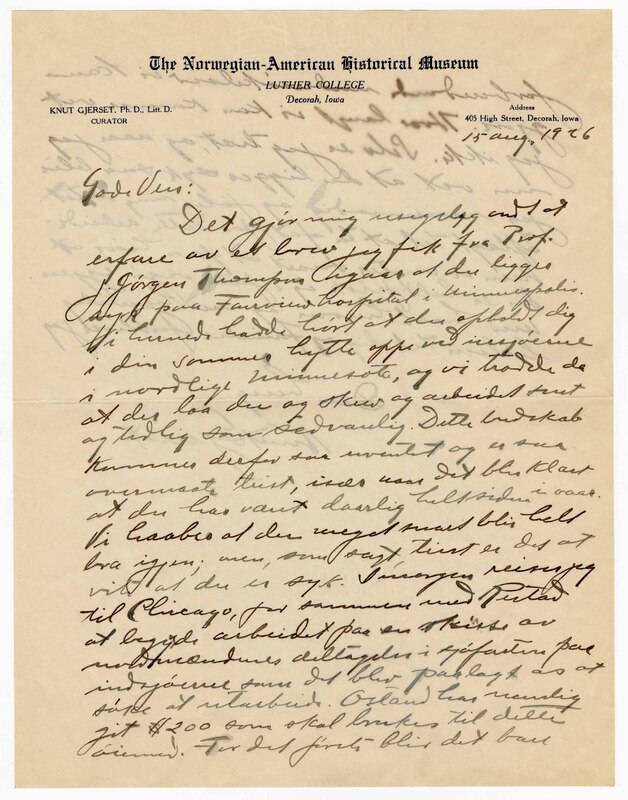 The Norwegian-American Historical Museum
LUTHER COLLEGE
Decorah, Iowa
KNUT GJERSET, Ph. D., Litt. D.
CURATOR
Address
405 High Street, Decorah, Iowa
15 aug. 1926
Gode Ven:
Det gjør mig usigelig ondt at
erfare av et brev jeg fik fra Prof.
J. Jørgen Thompson igaar at du ligger
syk paa Fairview hospital i Minneapolis.
Vi hernede hadde hørt at du opholdt dig
i din sommer hytte oppe ved insjøerne
i nordlige Minnesota, og vi trodde da
at du laa der og skrev og arbeidet sent
og tidlig som sedvanlig. Dette budskab
kommer derfor saa uventet og er saa
overmaate trist, især naar det blir klart
at du har været daarlig helt siden i vaar.
Vi haaber at du meget snart blir helt
bra igjen; men, som sagt trist er det at
vite at du er syk. Imorgen reiser jeg
til Chicago, for sammen med Ristad
at begynde arbeidet paa en skisse av
nordmændenes deltagelse i sjøfarten paa
indsjøerne som det blev paalagt os at
søke at utarbeide. Osland har nemlig
git $200 som skal brukes til dette
øiemed. For det første blir det bare